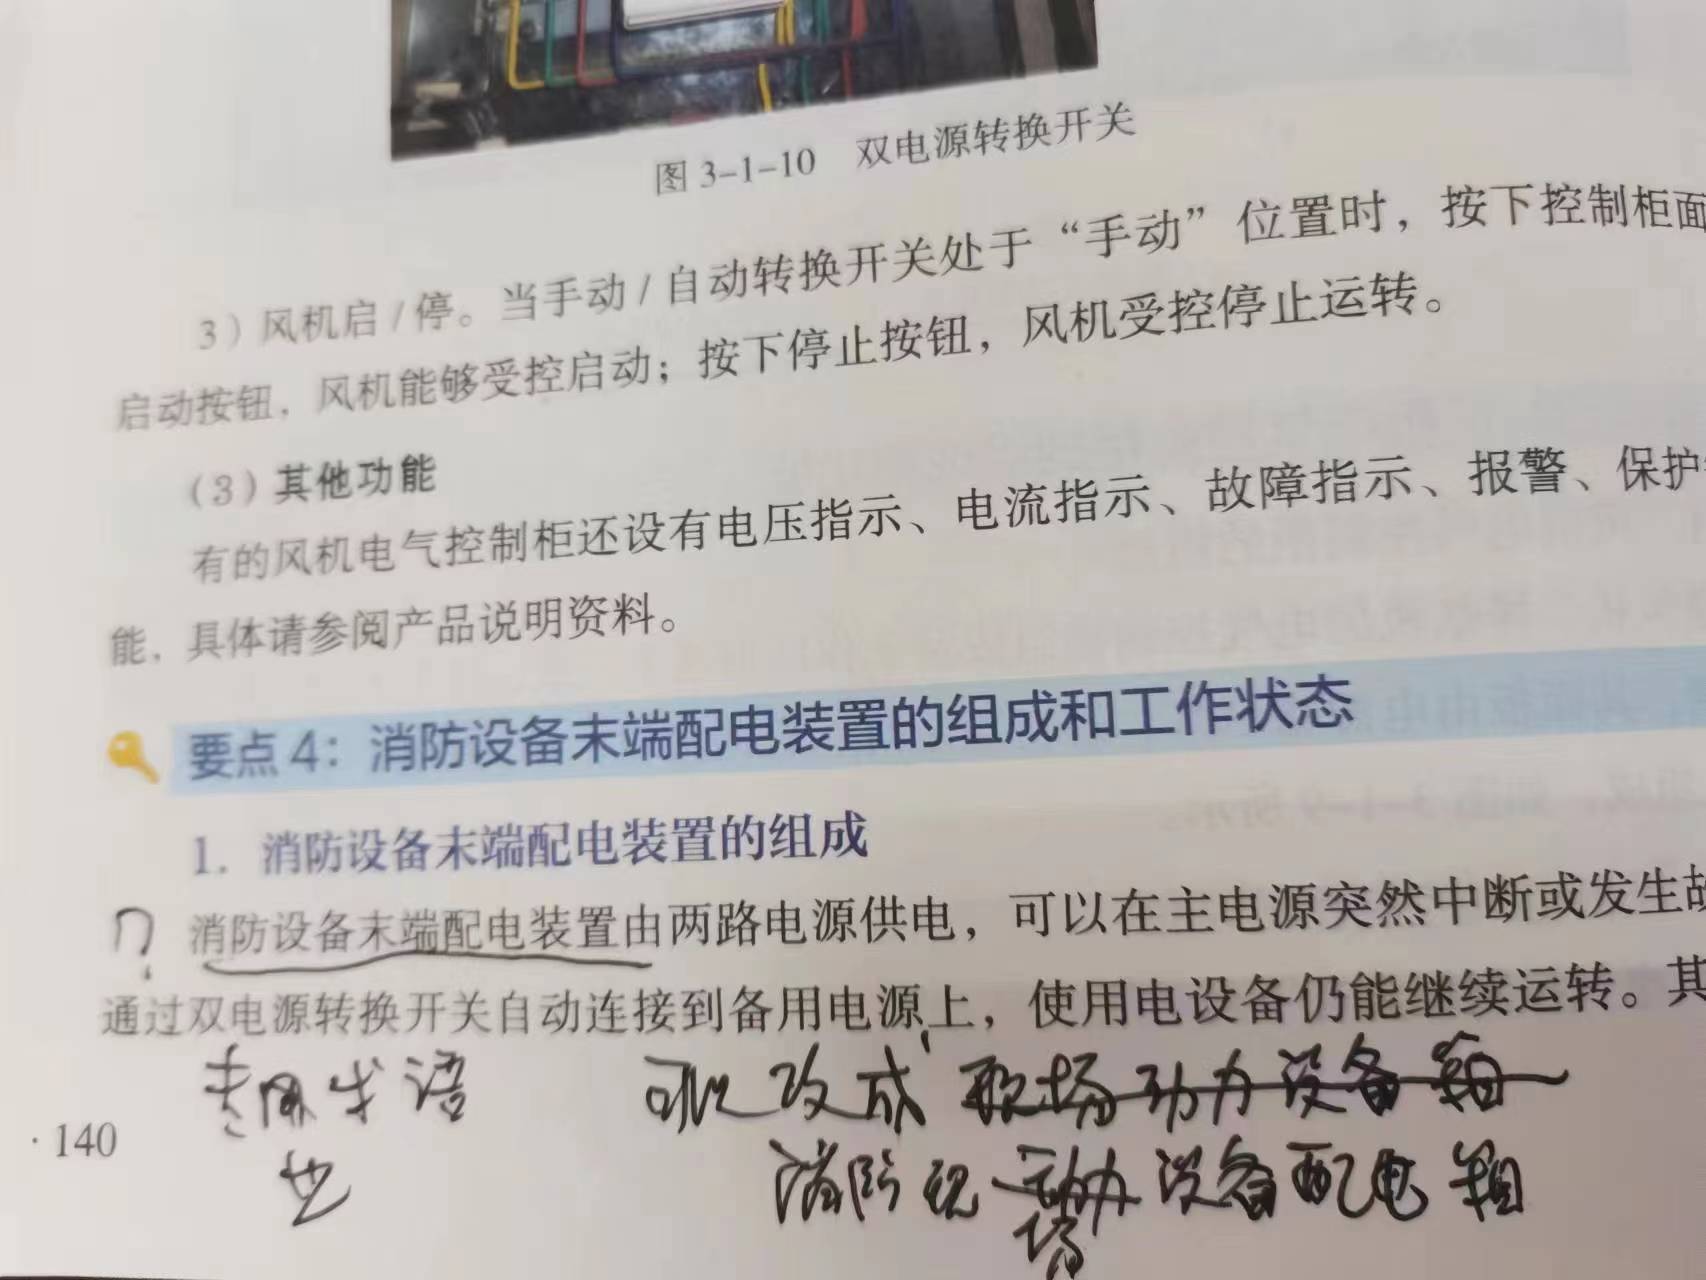 图 3-1-10 双电源转换开关
3）风机启/停。当手动/自动转换开关处于“手动”位置时，按下控制柜面
启动按钮，风机能够受控启动；按下停止按钮，风机受控停止运转。
（3）其他功能
有的风机电气控制柜还设有电压指示、电流指示、故障指示、报警、保护
能，具体请参阅产品说明资料。
要点 4：消防设备末端配电装置的组成和工作状态
1. 消防设备末端配电装置的组成
? 消防设备末端配电装置由两路电源供电，可以在主电源突然中断或发生故
通过双电源转换开关自动连接到备用电源上，使用电设备仍能继续运转。其
术语 可以改成 现场动力设备箱
消防现场设备配电箱
· 140